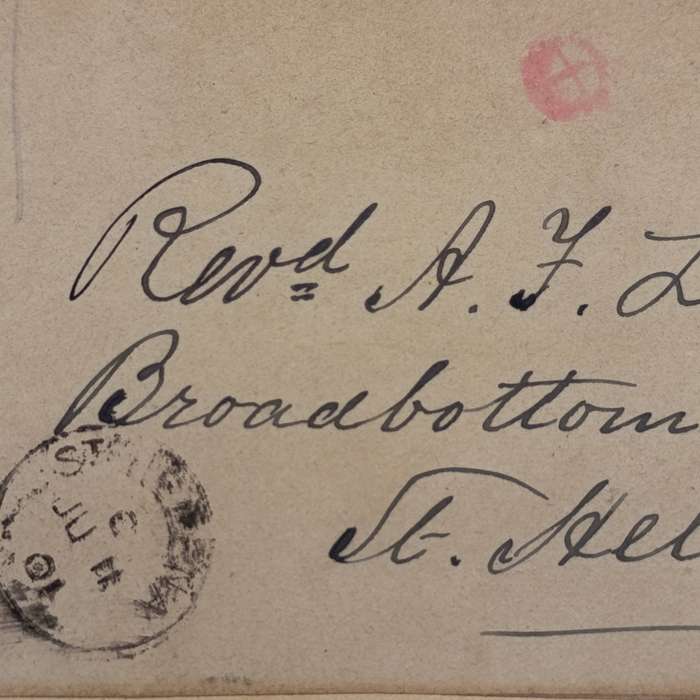 Revd A. F. L
Broadbottom
St. Hel
ST HELENA
JU
01